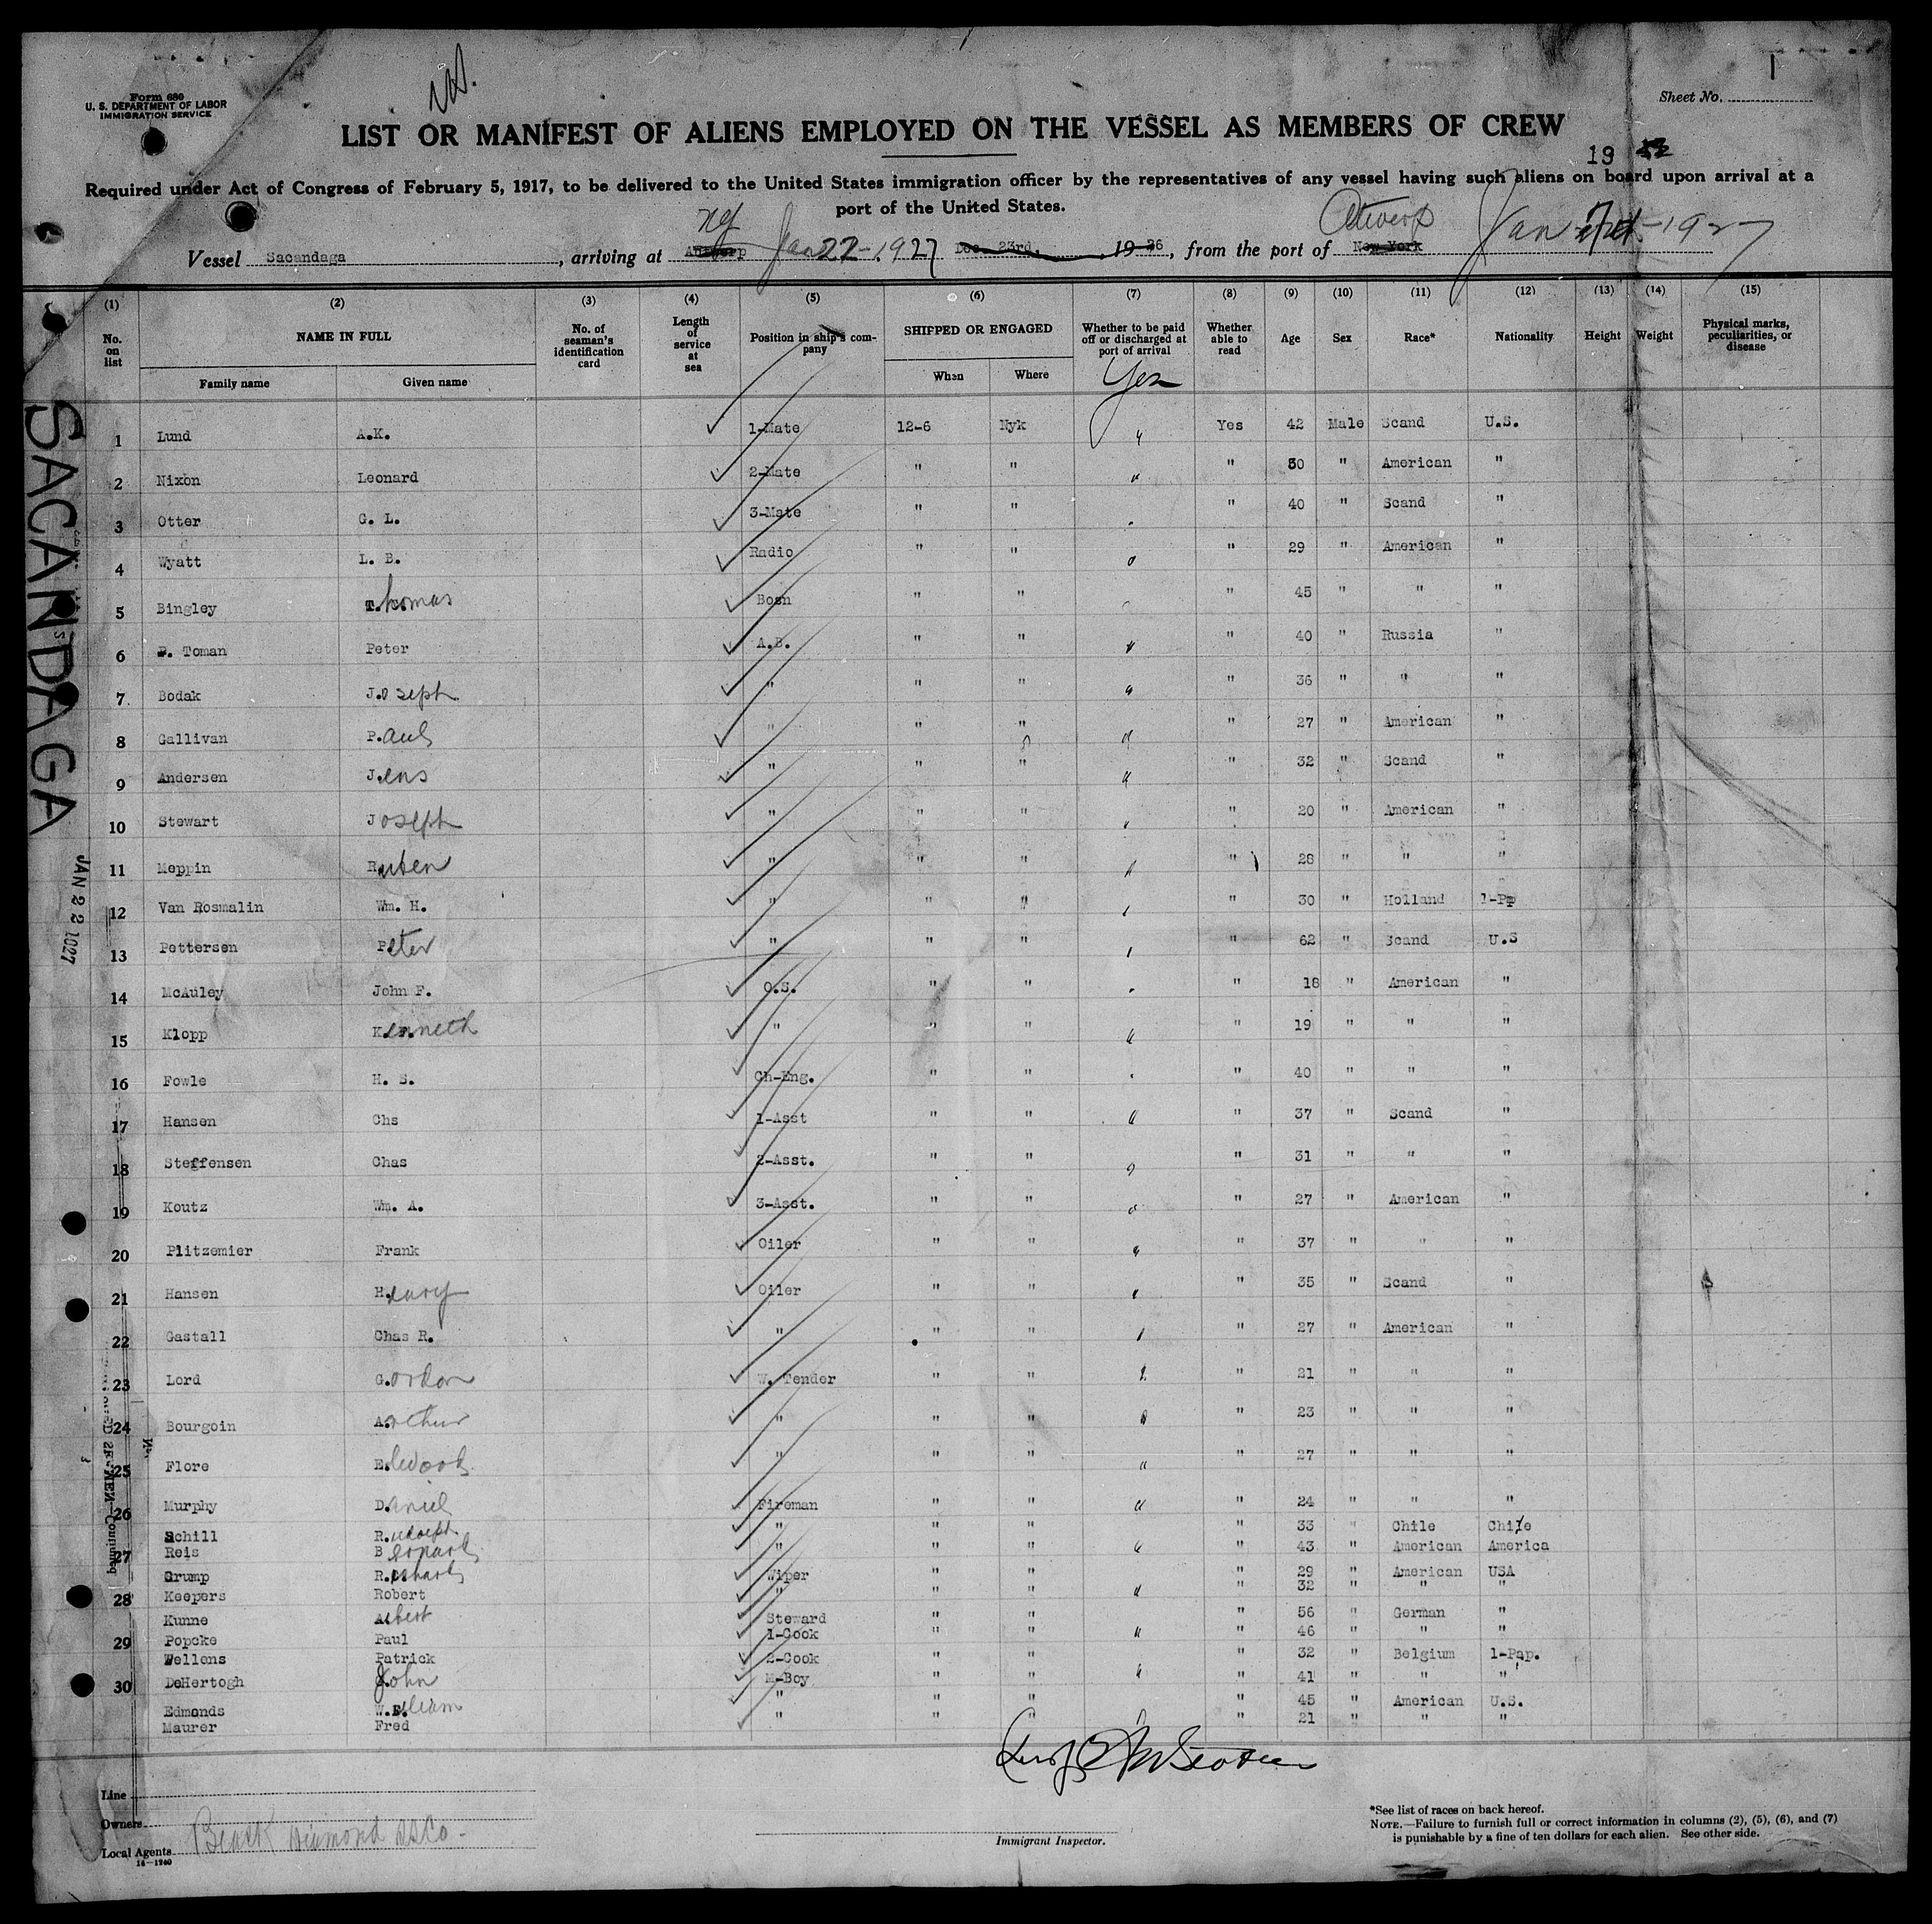 Form 680
U. S. DEPARTMENT OF LABOR
IMMIGRATION SERVICE
Sheet No.
1
LIST OR MANIFEST OF ALIENS EMPLOYED ON THE VESSEL AS MEMBERS OF CREW
19
Required under Act of Congress of February 5, 1917, to be delivered to the United States immigration officer by the representatives of any vessel having such aliens on board upon arrival at a
port of the United States.
Vessel Sacandaga, arriving at Antwerp NY Jan 22-1927 Dec. 23rd, 1926, from the port of New York Antwerp Jan 1927
(1) (2) (3) (4) (5) (6) (7) (8) (9) (10) (11) (12) (13) (14) (15)
No. on list NAME IN FULL No. of seaman's identification card Length of service at sea Position in ship's company SHIPPED OR ENGAGED Whether to be paid off or discharged at port of arrival Whether able to read Age Sex Race* Nationality Height Weight Physical marks, peculiarities, or disease
Family name Given name When Where Yes
1 Lund A.K. 1-Mate 12-6 Nyk " Yes 42 Male Scand U.S.
2 Nixon Leonard 2-Mate " " " " 30 " American "
3 Otter G. L. 3-Mate " " " " 40 " Scand "
4 Wyatt L. B. Radio " " " " 29 " American "
5 Bingley Thomas Bosn " " " " 45 " " "
6 Toman Peter A.B. " " " " 40 " Russia "
7 Bodak Joseph " " " " " 36 " " "
8 Gallivan Paul " " " " " 27 " American "
9 Andersen Jens " " " " " 32 " Scand "
10 Stewart Joseph " " " " " 20 " American "
11 Meppin Ruben " " " " " 28 " " "
12 Van Rosmalin Wm. H. " " " " " 30 " Holland 1-Pp
13 Pettersen Peter " " " " " 62 " Scand U.S
14 McAuley John F. O.S. " " " " 18 " American "
15 Klopp Kenneth " " " " " 19 " " "
16 Fowle H. S. Ch-Eng. " " " " 40 " " "
17 Hansen Chs 1-Asst " " " " 37 " Scand "
18 Steffensen Chas 2-Asst. " " " " 31 " " "
19 Koutz Wm. A. 3-Asst. " " " " 27 " American "
20 Plitzemier Frank Oiler " " " " 37 " " "
21 Hansen Henry Oiler " " " " 35 " Scand "
22 Gastall Chas R. " " " " " 27 " American "
23 Lord Gordon W. Tender " " " " 21 " " "
24 Bourgoin Arthur " " " " " 23 " " "
25 Flore Elwood " " " " " 27 " " "
26 Murphy Daniel Fireman " " " " 24 " " "
Schill Rudolph " " " " 33 " Chile Chile
27 Reis Bernard " " " " " 43 " American America
Crump Richard Wiper " " " 29 " American USA
28 Keepers Robert " " " " " 32 " " "
Kunne Albert Steward " " " 56 " German "
29 Popcke Paul 1-Cook " " " " 46 " " "
Wellens Patrick 2-Cook " " " 32 " Belgium 1-Pap.
30 DeHertogh John M-Boy " " " " 41 " " "
Edmonds William " " " " 45 " American U.S.
Maurer Fred " " " " 21 " " "
SACANDAGA
JAN 22 1927
Continued
Line
Owners
Black Diamond SS Co-
Local Agents
16-1240
Immigrant Inspector.
*See list of races on back hereof.
NOTE.—Failure to furnish full or correct information in columns (2), (5), (6), and (7)
is punishable by a fine of ten dollars for each alien. See other side.